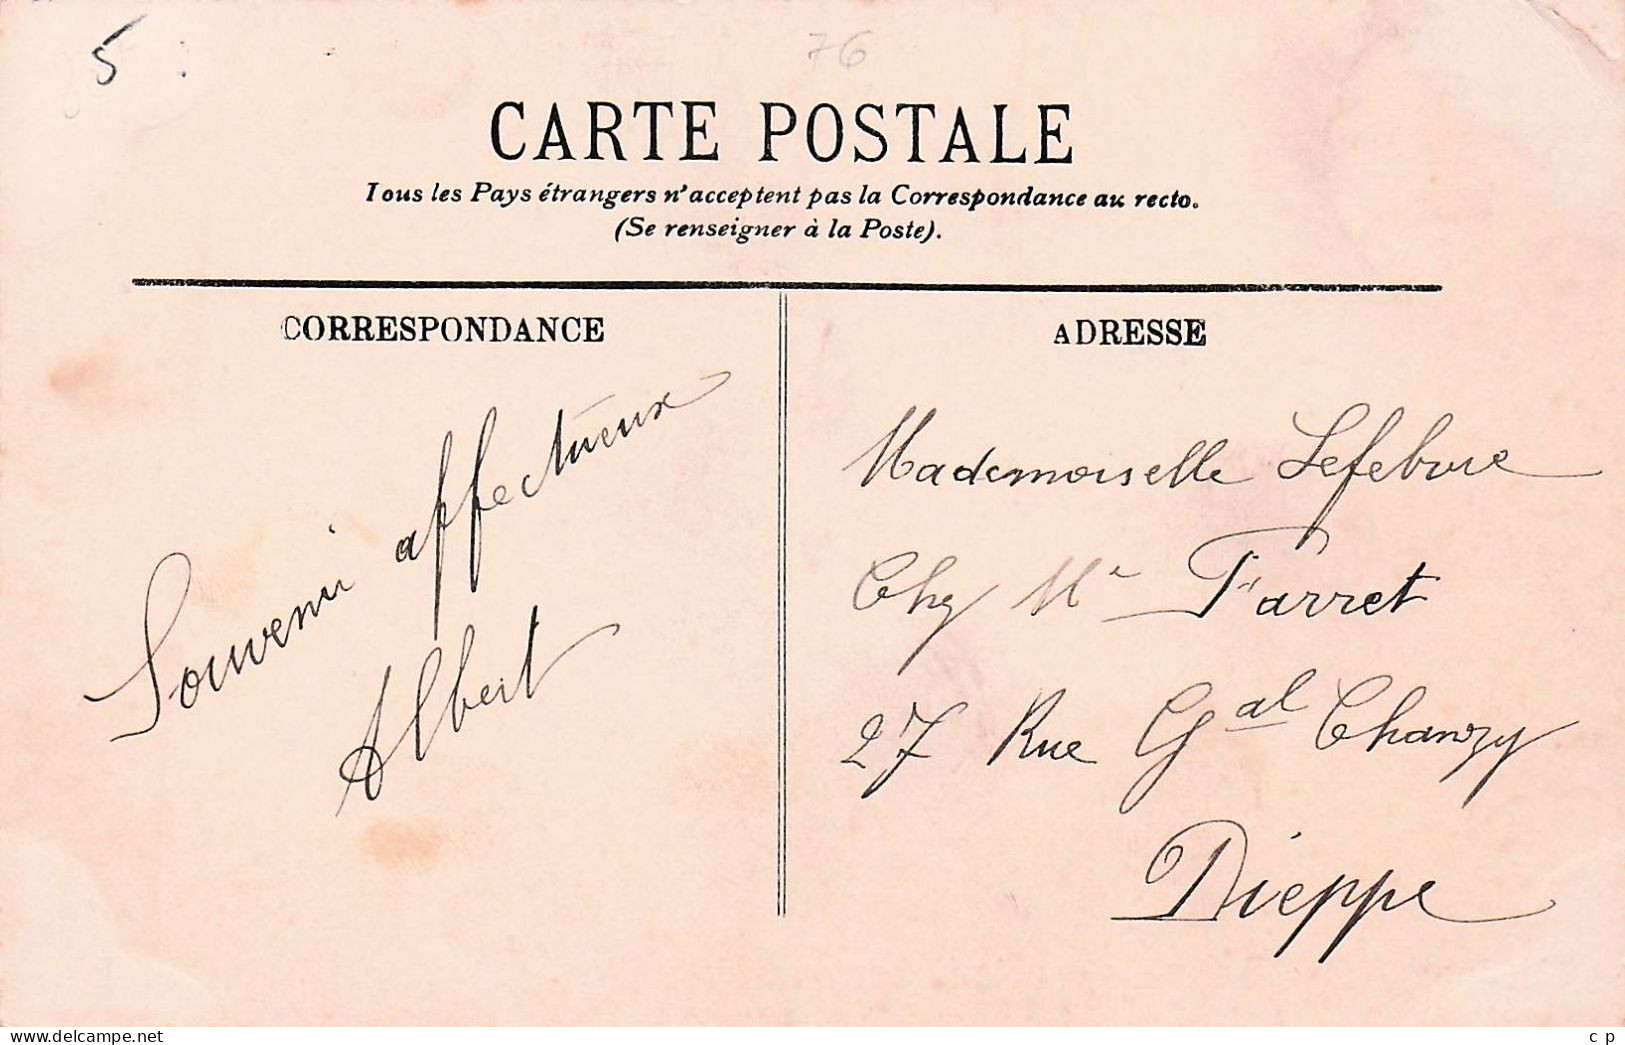 5
76
CARTE POSTALE
Tous les Pays étrangers n'acceptent pas la Correspondance au recto.
(Se renseigner à la Poste).
CORRESPONDANCE
Souvenir affectueux
Albert
ADRESSE
Mademoiselle Lefebvre
Chez Mr Farret
27 Rue Gal Chanzy
Dieppe
www.delcampe.net
c p